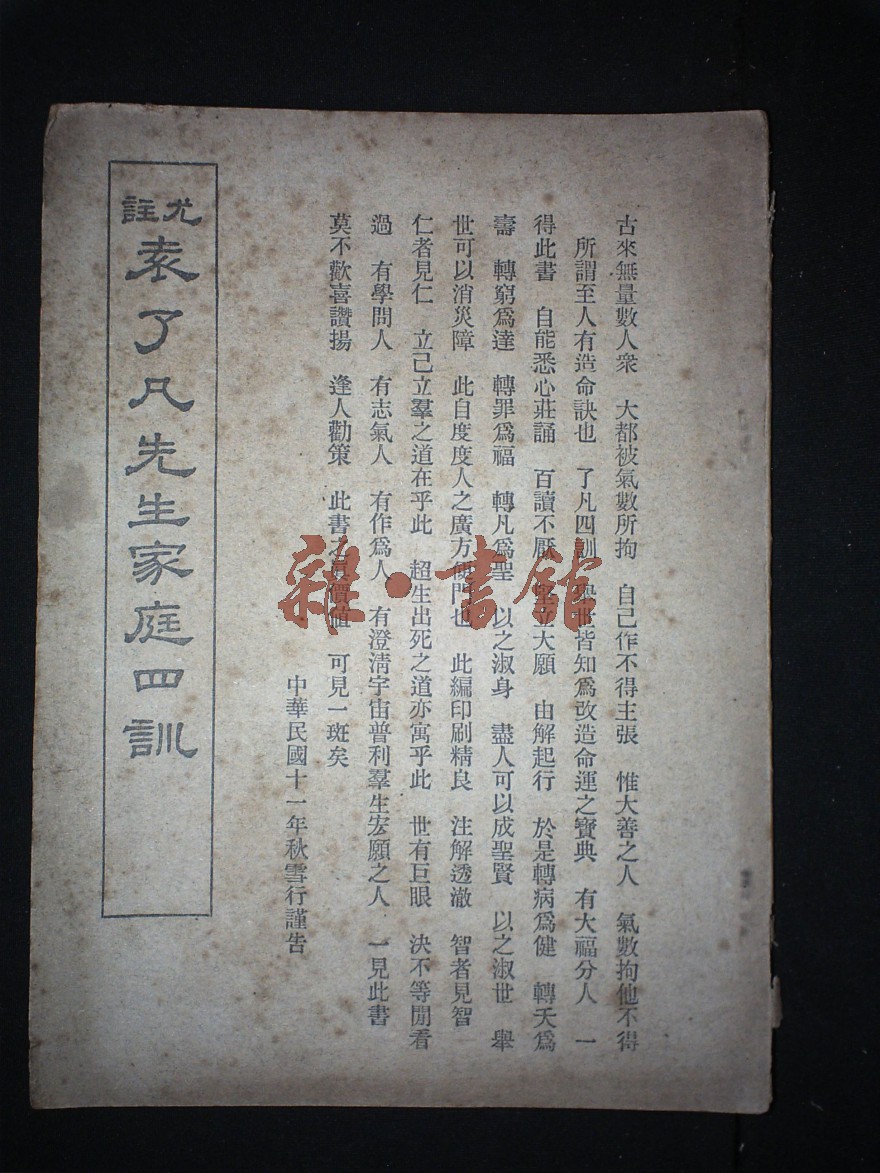 古來無量數人衆　大都被氣數所拘　自己作不得主張　惟大善之人　氣數拘他不得
所謂至人有造命訣也　了凡四訓　舉世皆知爲改造命運之寶典　有大福分人　一
得此書　自能悉心莊誦　百讀不厭　立大願　由解起行　於是轉病爲健　轉夭爲
壽　轉窮爲達　轉罪爲福　轉凡爲聖　以之淑身　盡人可以成聖賢　以之淑世　舉
世可以消災障　此自度度人之廣方便門也　此編印刷精良　注解透澈　智者見智
仁者見仁　立己立羣之道在乎此　超生出死之道亦寓乎此　世有巨眼　決不等閒看
過　有學問人　有志氣人　有作爲人　有澄清宇宙普利羣生宏願之人　一見此書
莫不歡喜讚揚　逢人勸策　此書之真價値　可見一斑矣
中華民國十一年秋雪行謹告
尤註
袁了凡先生家庭四訓
雜·書館